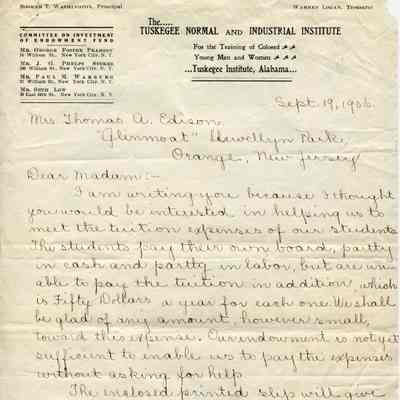 BOOKER T. WASHINGTON, Principal
WARREN LOGAN, Treasurer
COMMITTEE ON INVESTMENT
OF ENDOWMENT FUND
MR. GEORGE FOSTER PEABODY
54 William St., New York City, N. Y.
MR. J. G. PHELPS STOKES
William St., New York City, N. Y.
MR. PAUL M. WARBURG
William St., New York City, N. Y.
MR. SETH LOW
30 East 64th St., New York City, N. Y.
The.....
TUSKEGEE NORMAL AND INDUSTRIAL INSTITUTE
For the Training of Colored
Young Men and Women
...Tuskegee Institute, Alabama...
Sept 19, 1906.
Mrs Thomas A. Edison,
"Glenmoat" Llewellyn Park,
Orange, New Jersey
Dear Madam:-
I am writing you because I thought
you would be interested in helping us to
meet the tuition expenses of our students
The students pay their own board, partly
in cash and partly in labor, but are un-
able to pay the tuition in addition, which
is Fifty Dollars a year for each one. We shall
be glad of any amount, however small,
toward this expense. Our endowment is not yet
sufficient to enable us to pay the expenses
without asking for help.
The enclosed printed slip will give